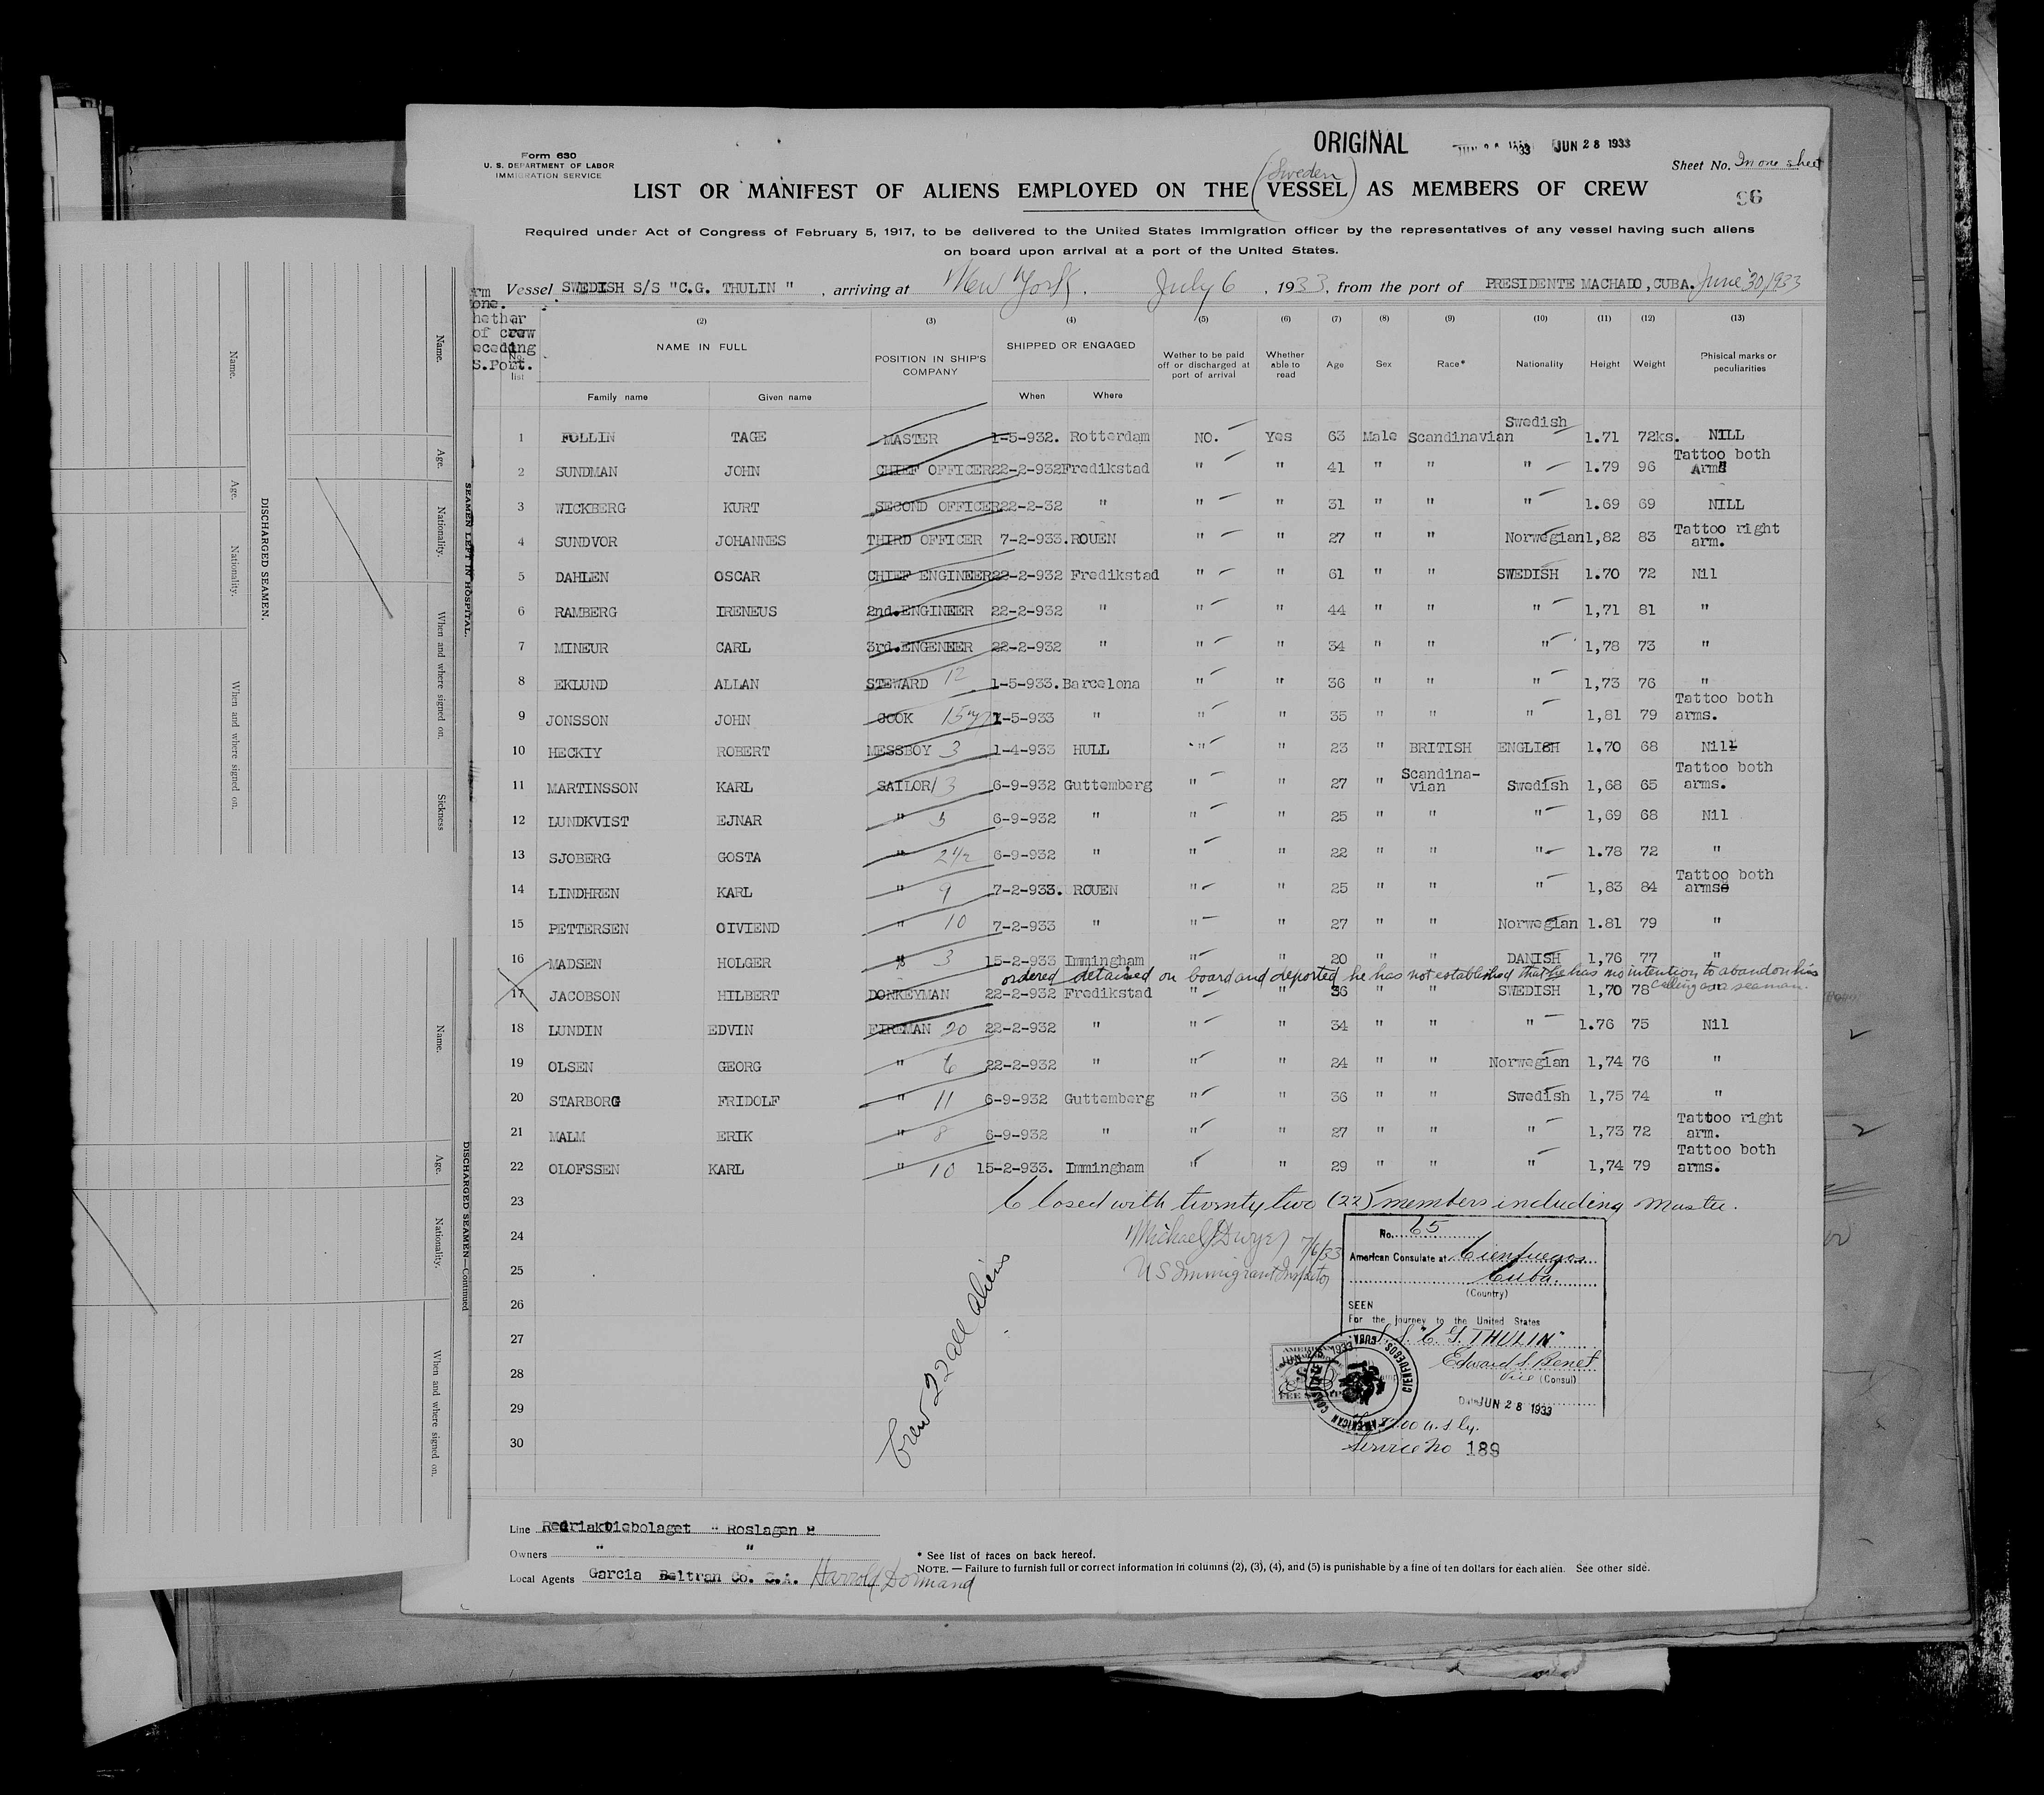 ORIGINAL
JUN 28 1933
Form 630
U. S. DEPARTMENT OF LABOR
IMMIGRATION SERVICE
Sheet No. In one sheet
96
(Sweden)
LIST OR MANIFEST OF ALIENS EMPLOYED ON THE VESSEL AS MEMBERS OF CREW
Required under Act of Congress of February 5, 1917, to be delivered to the United States Immigration officer by the representatives of any vessel having such aliens
on board upon arrival at a port of the United States.
Vessel SWEDISH S/S "C.G. THULIN " , arriving at New York. July 6 , 1933, from the port of PRESIDENTE MACHADO, CUBA. June 30/933
rm
one.
hether
of crew
eceding
S.Port.
No. list
(2) NAME IN FULL
Family name Given name
(3) POSITION IN SHIP'S COMPANY
(4) SHIPPED OR ENGAGED
When Where
(5) Wether to be paid off or discharged at port of arrival
(6) Whether able to read
(7) Age
(8) Sex
(9) Race*
(10) Nationality
(11) Height
(12) Weight
(13) Phisical marks or peculiarities
1 FOLLIN TAGE MASTER 1-5-932. Rotterdam NO. Yes 63 Male Scandinavian Swedish 1.71 72ks. NILL
2 SUNDMAN JOHN CHIEF OFFICER 22-2-932 Fredikstad " " 41 " " " 1.79 96 Tattoo both Arms
3 WICKBERG KURT SECOND OFFICER 22-2-32 " " " 31 " " " 1.69 69 NILL
4 SUNDVOR JOHANNES THIRD OFFICER 7-2-933. ROUEN " " 27 " " Norwegian 1,82 83 Tattoo right arm.
5 DAHLEN OSCAR CHIEF ENGINEER 22-2-932 Fredikstad " " 61 " " SWEDISH 1.70 72 Nil
6 RAMBERG IRENEUS 2nd.ENGINEER 22-2-932 " " " 44 " " " 1,71 81 "
7 MINEUR CARL 3rd.ENGENEER 22-2-932 " " " 34 " " " 1,78 73 "
8 EKLUND ALLAN STEWARD 12 1-5-933. Barcelona " " 36 " " " 1,73 76 "
9 JONSSON JOHN COOK 15 1-5-933 " " " 35 " " " 1,81 79 Tattoo both arms.
10 HECKIY ROBERT MESSBOY 3 1-4-933 HULL " " 23 " BRITISH ENGLISH 1.70 68 Nil
11 MARTINSSON KARL SAILOR 13 6-9-932 Guttemberg " " 27 " Scandina-vian Swedish 1,68 65 Tattoo both arms.
12 LUNDKVIST EJNAR " 3 6-9-932 " " " 25 " " " 1,69 68 Nil
13 SJOBERG GOSTA " 2 1/2 6-9-932 " " " 22 " " " 1.78 72 "
14 LINDHREN KARL " 9 7-2-933. ROUEN " " 25 " " " 1,83 84 Tattoo both arms
15 PETTERSEN OIVIEND " 10 7-2-933 " " " 27 " " Norwegian 1.81 79 "
16 MADSEN HOLGER " 3 15-2-933 Immingham " " 20 " " DANISH 1,76 77 "
ordered detained on board and deported he has not established that he has no intention to abandon his calling as a seaman.
17 JACOBSON HILBERT DONKEYMAN 22-2-932 Fredikstad " " 36 " " SWEDISH 1,70 78 "
18 LUNDIN EDVIN FIREMAN 20 22-2-932 " " " 34 " " " 1.76 75 Nil
19 OLSEN GEORG " 6 22-2-932 " " " 24 " " Norwegian 1,74 76 "
20 STARBORG FRIDOLF " 11 6-9-932 Guttemberg " " 36 " " Swedish 1,75 74 "
21 MALM ERIK " 8 6-9-932 " " " 27 " " " 1,73 72 Tattoo right arm.
22 OLOFSSEN KARL " 10 15-2-933. Immingham " " 29 " " " 1,74 79 Tattoo both arms.
23 Closed with twenty two (22) members including Master.
24 Michael J Dwyer 7/6/33
25 U S Immigrant Inspector
26
27
28
29
30
Crew 22 all aliens
No. 65
American Consulate at Cienfuegos
Cuba.
(Country)
SEEN
For the journey to the United States
S.S. "C. G. THULIN"
Edward S. Benet
Vice (Consul)
Date JUN 28 1933
AMERICAN CONSULATE CIENFUEGOS, CUBA.
Service No 189
Line Rederiaktiebolaget " Roslagen "
Owners " "
Local Agents Garcia Beltran Co. S.A. Harrold Dormand
* See list of races on back hereof.
NOTE. — Failure to furnish full or correct information in columns (2), (3), (4), and (5) is punishable by a fine of ten dollars for each alien. See other side.
SEAMEN LEFT IN HOSPITAL.
Name. Age. Nationality. When and where signed on. Sickness
DISCHARGED SEAMEN.
Name. Age. Nationality. When and where signed on.
DISCHARGED SEAMEN—Continued
Name. Age. Nationality. When and where signed on.